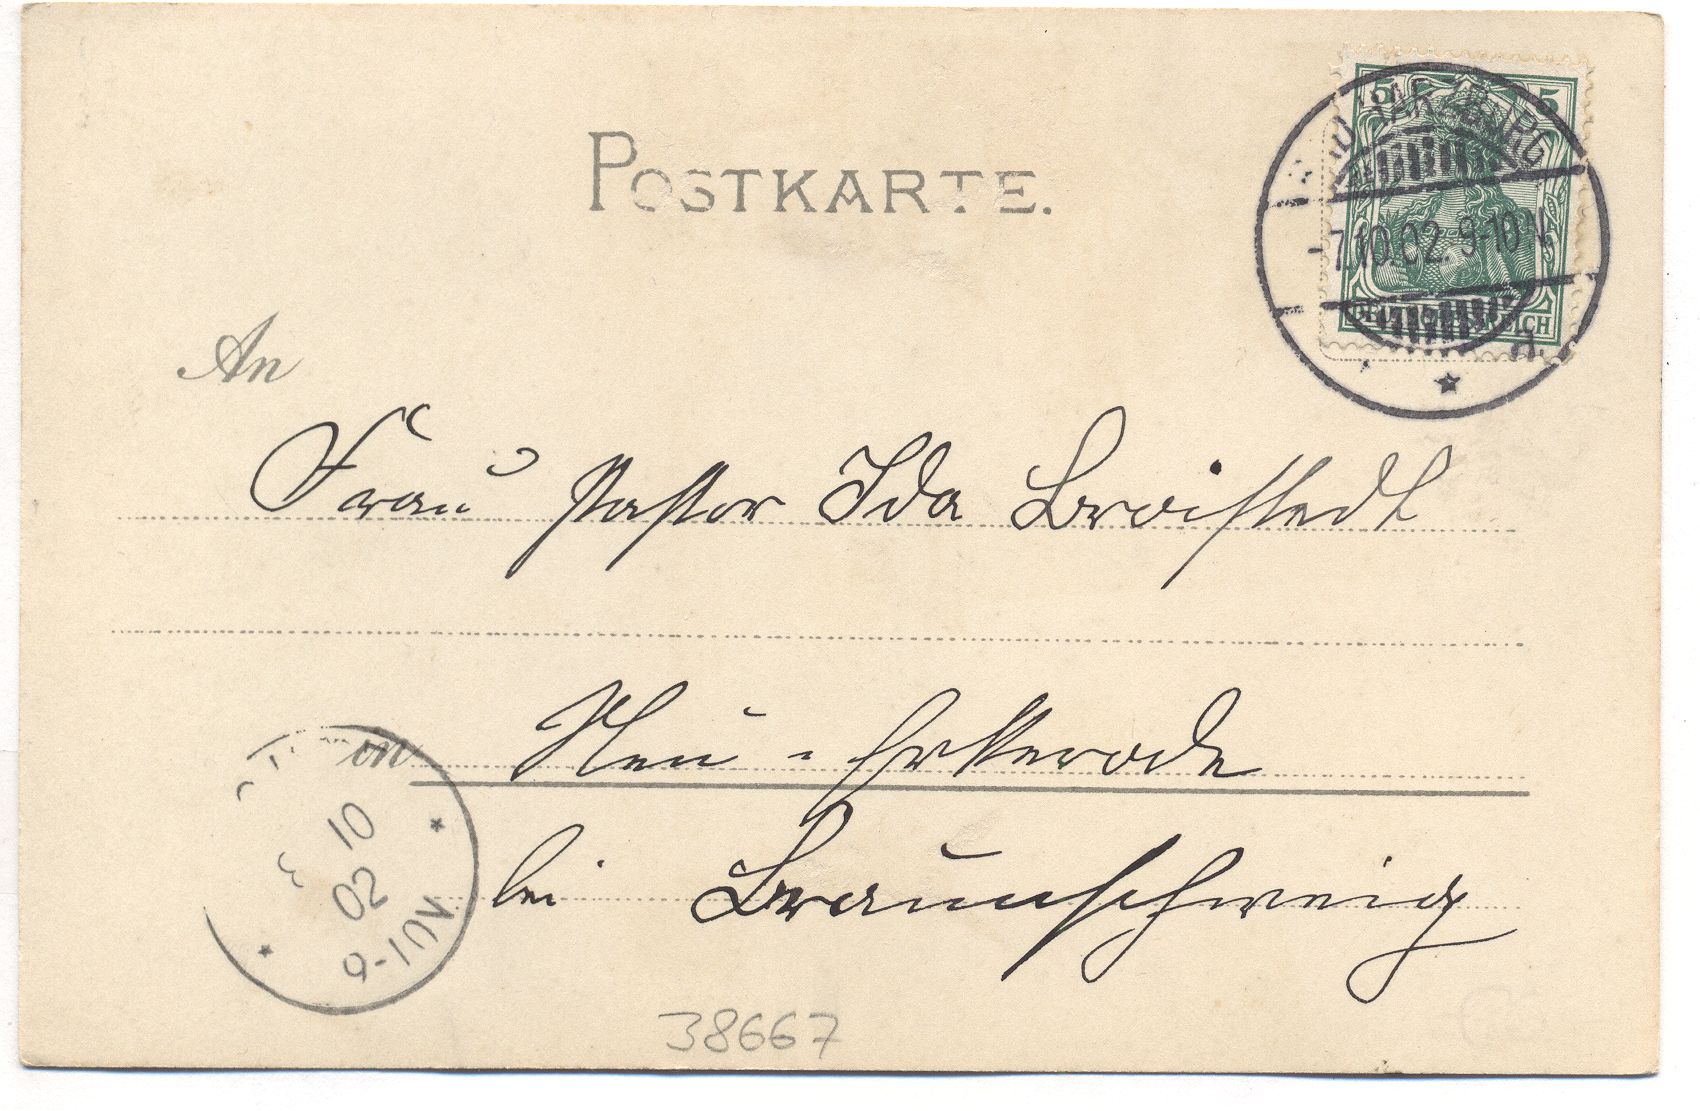 POSTKARTE.
5 5
BAD HARZBURG
-7.10.02. 9-10 V.
DEUTSCHES REICH
An
Frau Pastor Ida Broistedt
in
Neu-Erkerode
10
02
9-10V
bei Braunschweig
38667